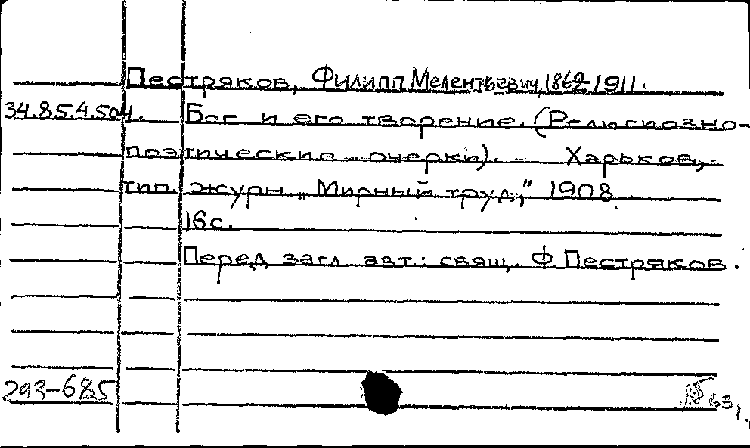 Пестряков, Филипп Мелентьевич, 1862-1911.
34.85.4.504. Бог и его творение. (Религиозно-
поэтические очерки). Харьков,
тип. журн. „Мирный труд," 1908.
16 с.
Перед загл. авт.: свящ. Ф. Пестряков.
293-685